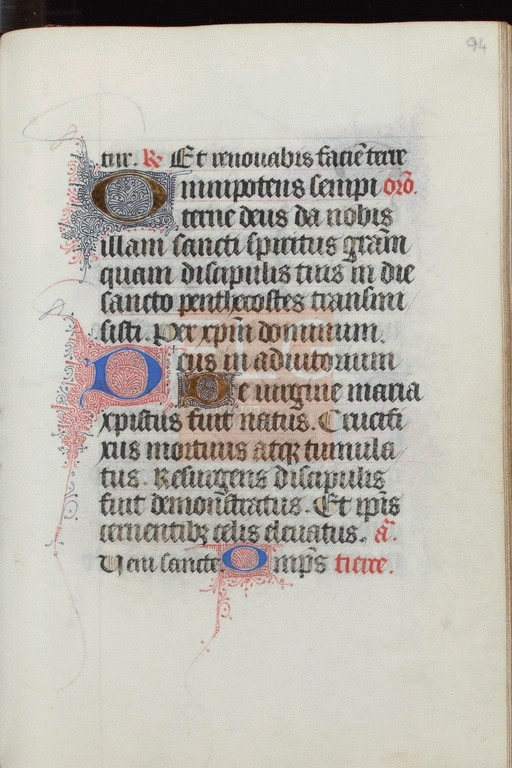 94
tur. R Et renouabis faciē terre
Omnipotens sempi orō.
terne deus da nobis
illam sancti spiritus grām
quam discipulis tuis in die
sancto penthecostes transmi
sisti. Per xp̄m dominum.
Deus in adiutorium
De uirgine maria
xpistus fuit natus. Crucifi
xus mortuus atqꝫ tumula
tus. Resurgens discipulis
fuit demonstratus. Et ip̄is
cernentibꝫ celis eleuatus. ā.
Ueni sancte Omp̄s tierce.